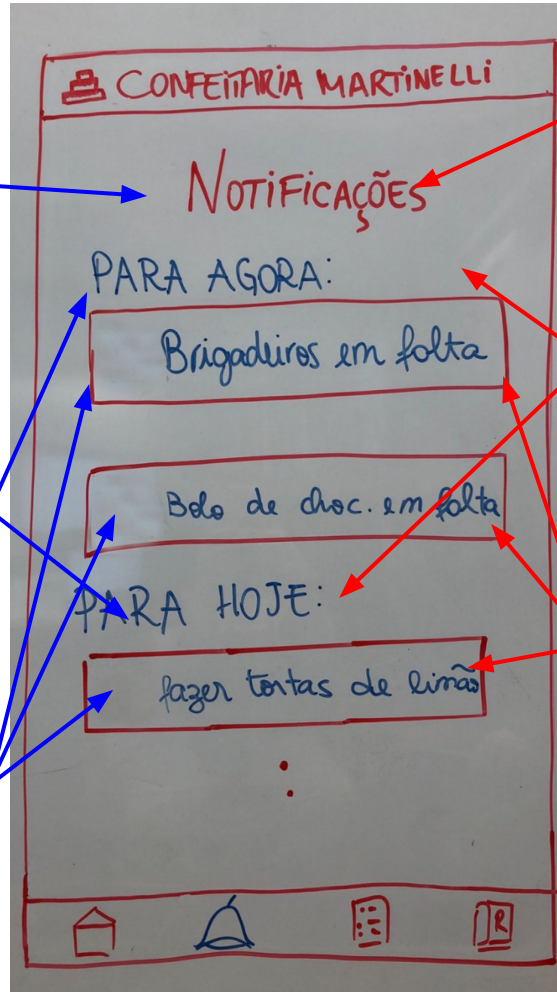 CONFEITARIA MARTINELLI
NOTIFICAÇÕES
PARA AGORA:
Brigadeiros em falta
Bolo de choc. em falta
PARA HOJE:
fazer tortas de limão
R